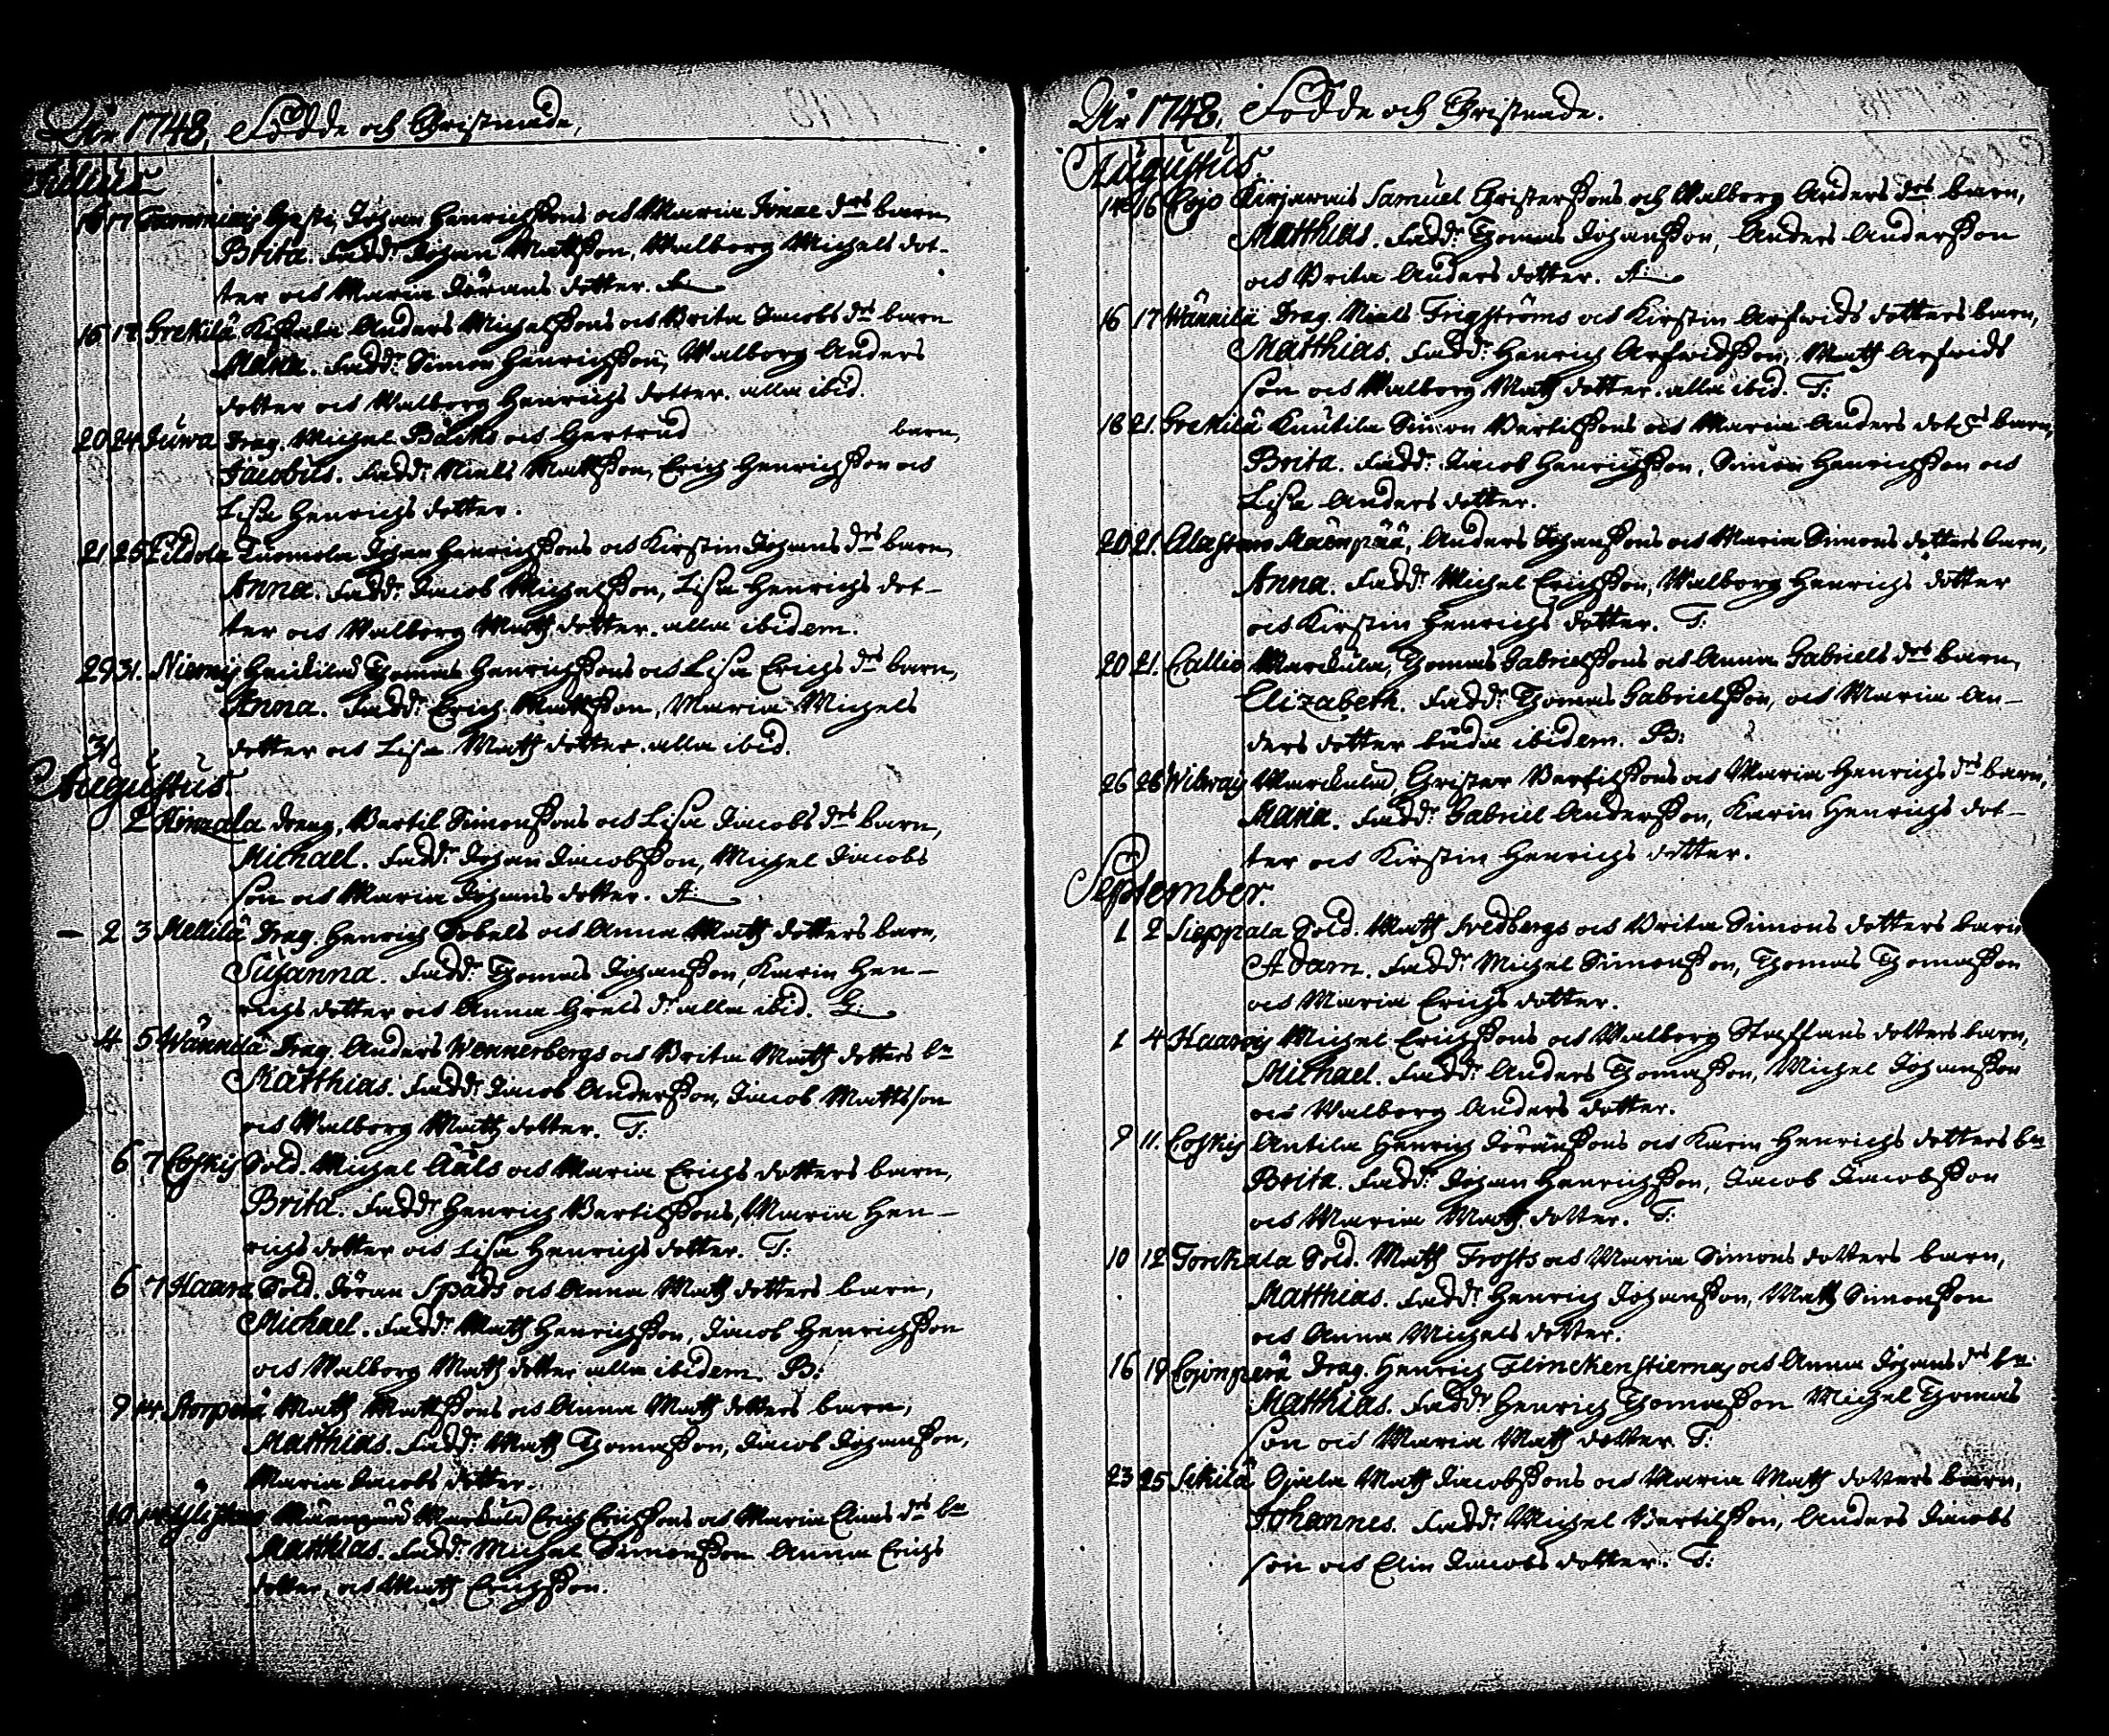 År 1748. Födde och Christnade,
Julius
16 17 Tuomminis Heste, Johan Henrichßons och Maria Jönne drs barn,
Brita. Fadd: Johan Mattßon, Walborg Michels dot-
ter och Maria Jörans dotter.
15 17 Grekilä Kistala Anders Michelßons och Brita Jacobs drs barn
Maria. Fadd: Simon Henrichßon, Walborg Anders
dotter och Walborg Henrichs dotter. alla ibid.
20 24 Juwa Drag. Michel Bäcks och Gertrud barn,
Jacobus. Fadd: Niels Mattßon, Erich Henrichßon och
Lisa Henrichs dotter.
21 25 Pildola Tuomola Johan Henrichßons och Kirstin Johans drs barn,
Anna. Fadd: Jacob Michelßon, Lisa Henrichs dot-
ter och Walborg Math dotter. alla ibidem.
29 31. Niemis Heickilä Thomas Henrichßons och Lisa Erichs drs barn,
Anna. Fadd: Erich Mattßon, Maria Michels
dotter och Lisa Math dotter. alla ibid.
31
Augustus.
2 dreng, Bertil Simonßons och Lisa Jacobs drs barn,
Michael. Fadd: Johan Jacobßon, Michel Jacobs
son och Maria Johans dotter. A:
2 3 Mellilä Drag. Henrich Sobels och Anna Math dotters barn,
Susanna. Fadd: Thomas Johanßon, Karin Hen-
richs dotter och Anna Grels dr alla ibid.
4 5 Wännilä Drag. Anders Wennerbergs och Brita Math dotters bn
Matthias. Fadd: Jacob Anderßon, Jacob Mattsson
och Walborg Math dotter. T:
6 7 Coskis Sold. Michel Auls och Maria Erichs dotters barn,
Brita. Fadd: Henrich Bertilßons, Maria Hen-
richs dotter och Lisa Henrichs dotter. T:
6 7 Haara Sold. Jöran Späds och Anna Math dotters barn,
Michael. Fadd: Math Henrichßon, Jacob Henrichßon
och Walborg Math dotter alla ibidem. B:
9 14 Storperä Math Mattßons och Anna Math dotters barn,
Matthias. Fadd: Math Thomaßon, Jacob Johanßon,
Maria Jacobs dotter.
10 14 Ylistaro Markula Erich Erichßons och Maria Elias drs bn
Matthias. Fadd: Michel Simonßon Anna Erichs
dotter, och Math Erichßon.
År 1748. Födde och Christnade.
Augustus.
14 16 Cojo Kirjawais Samuel Christerßons och Walborg Anders drs barn,
Matthias. Fadd: Thomas Johanßon, Anders Anderßon
och Brita Anders dotter. A:
16 17 Wännilä Drag. Niels Frigströms och Kirstin Arfwids dotters barn,
Matthias. Fadd: Henrich Arfwidßon, Math Arfwids
son och Walborg Math dotter. alla ibid. T:
18 21. Grekilä Knutila Simon Bertilßons och Maria Anders dotrs barn,
Brita. Fadd: Jacob Henrichßon, Simon Henrichßon och
Lisa Anders dotter.
20 21. Alastaro Mäenpää, Anders Johanßons och Maria Simons dotters barn,
Anna. Fadd: Michel Erichßon, Walborg Henrichs dotter
och Kirstin Henrichs dotter. T:
20 21. Callio Marckula, Thomas Gabrielßons och Anna Gabriels drs barn,
Elizabeth. Fadd: Thomas Gabrielßon, och Maria An-
ders dotter båda ibidem. B:
26 28 Wilwais Marckula, Christer Bertilßons och Maria Henrichs drs barn,
Maria. Fadd: Gabriel Anderßon, Karin Henrichs dot-
ter och Kirstin Henrichs dotter.
September.
1 2 Sieppala Sold. Math Fredbergs och Brita Simons dotters barn
Adam. Fadd: Michel Simonßon, Thomas Thomaßon
och Maria Erichs dotter.
1 4 Haarois Michel Erichßons och Walborg Staffans dotters barn,
Michael. Fadd: Anders Thomaßon, Michel Johanßon
och Walborg Anders dotter.
9 11. Coskis Antila Henrich Jöranßons och Karin Henrichs dotters bn
Brita. Fadd: Johan Henrichßon, Jacob Jacobßon
och Maria Math dotter. T:
10 12 Torckala Sold. Math Frosts och Maria Simons dotters barn,
Matthias. Fadd: Henrich Johanßon, Math Simonßon
och Anna Michels dotter.
16 18 Cojonperä Drag. Henrich Flinckenstiernas och Anna Johans drs bn.
Matthias. Fadd: Henrich Thomaßon Michel Thomas
son och Maria Math dotter. T:
23 25 Sikilä Ojala Math Jacobßons och Maria Math dotters barn,
Johannes. Fadd: Michel Bertilßon, Anders Jacobs
son och Elin Jacobs dotter. T: